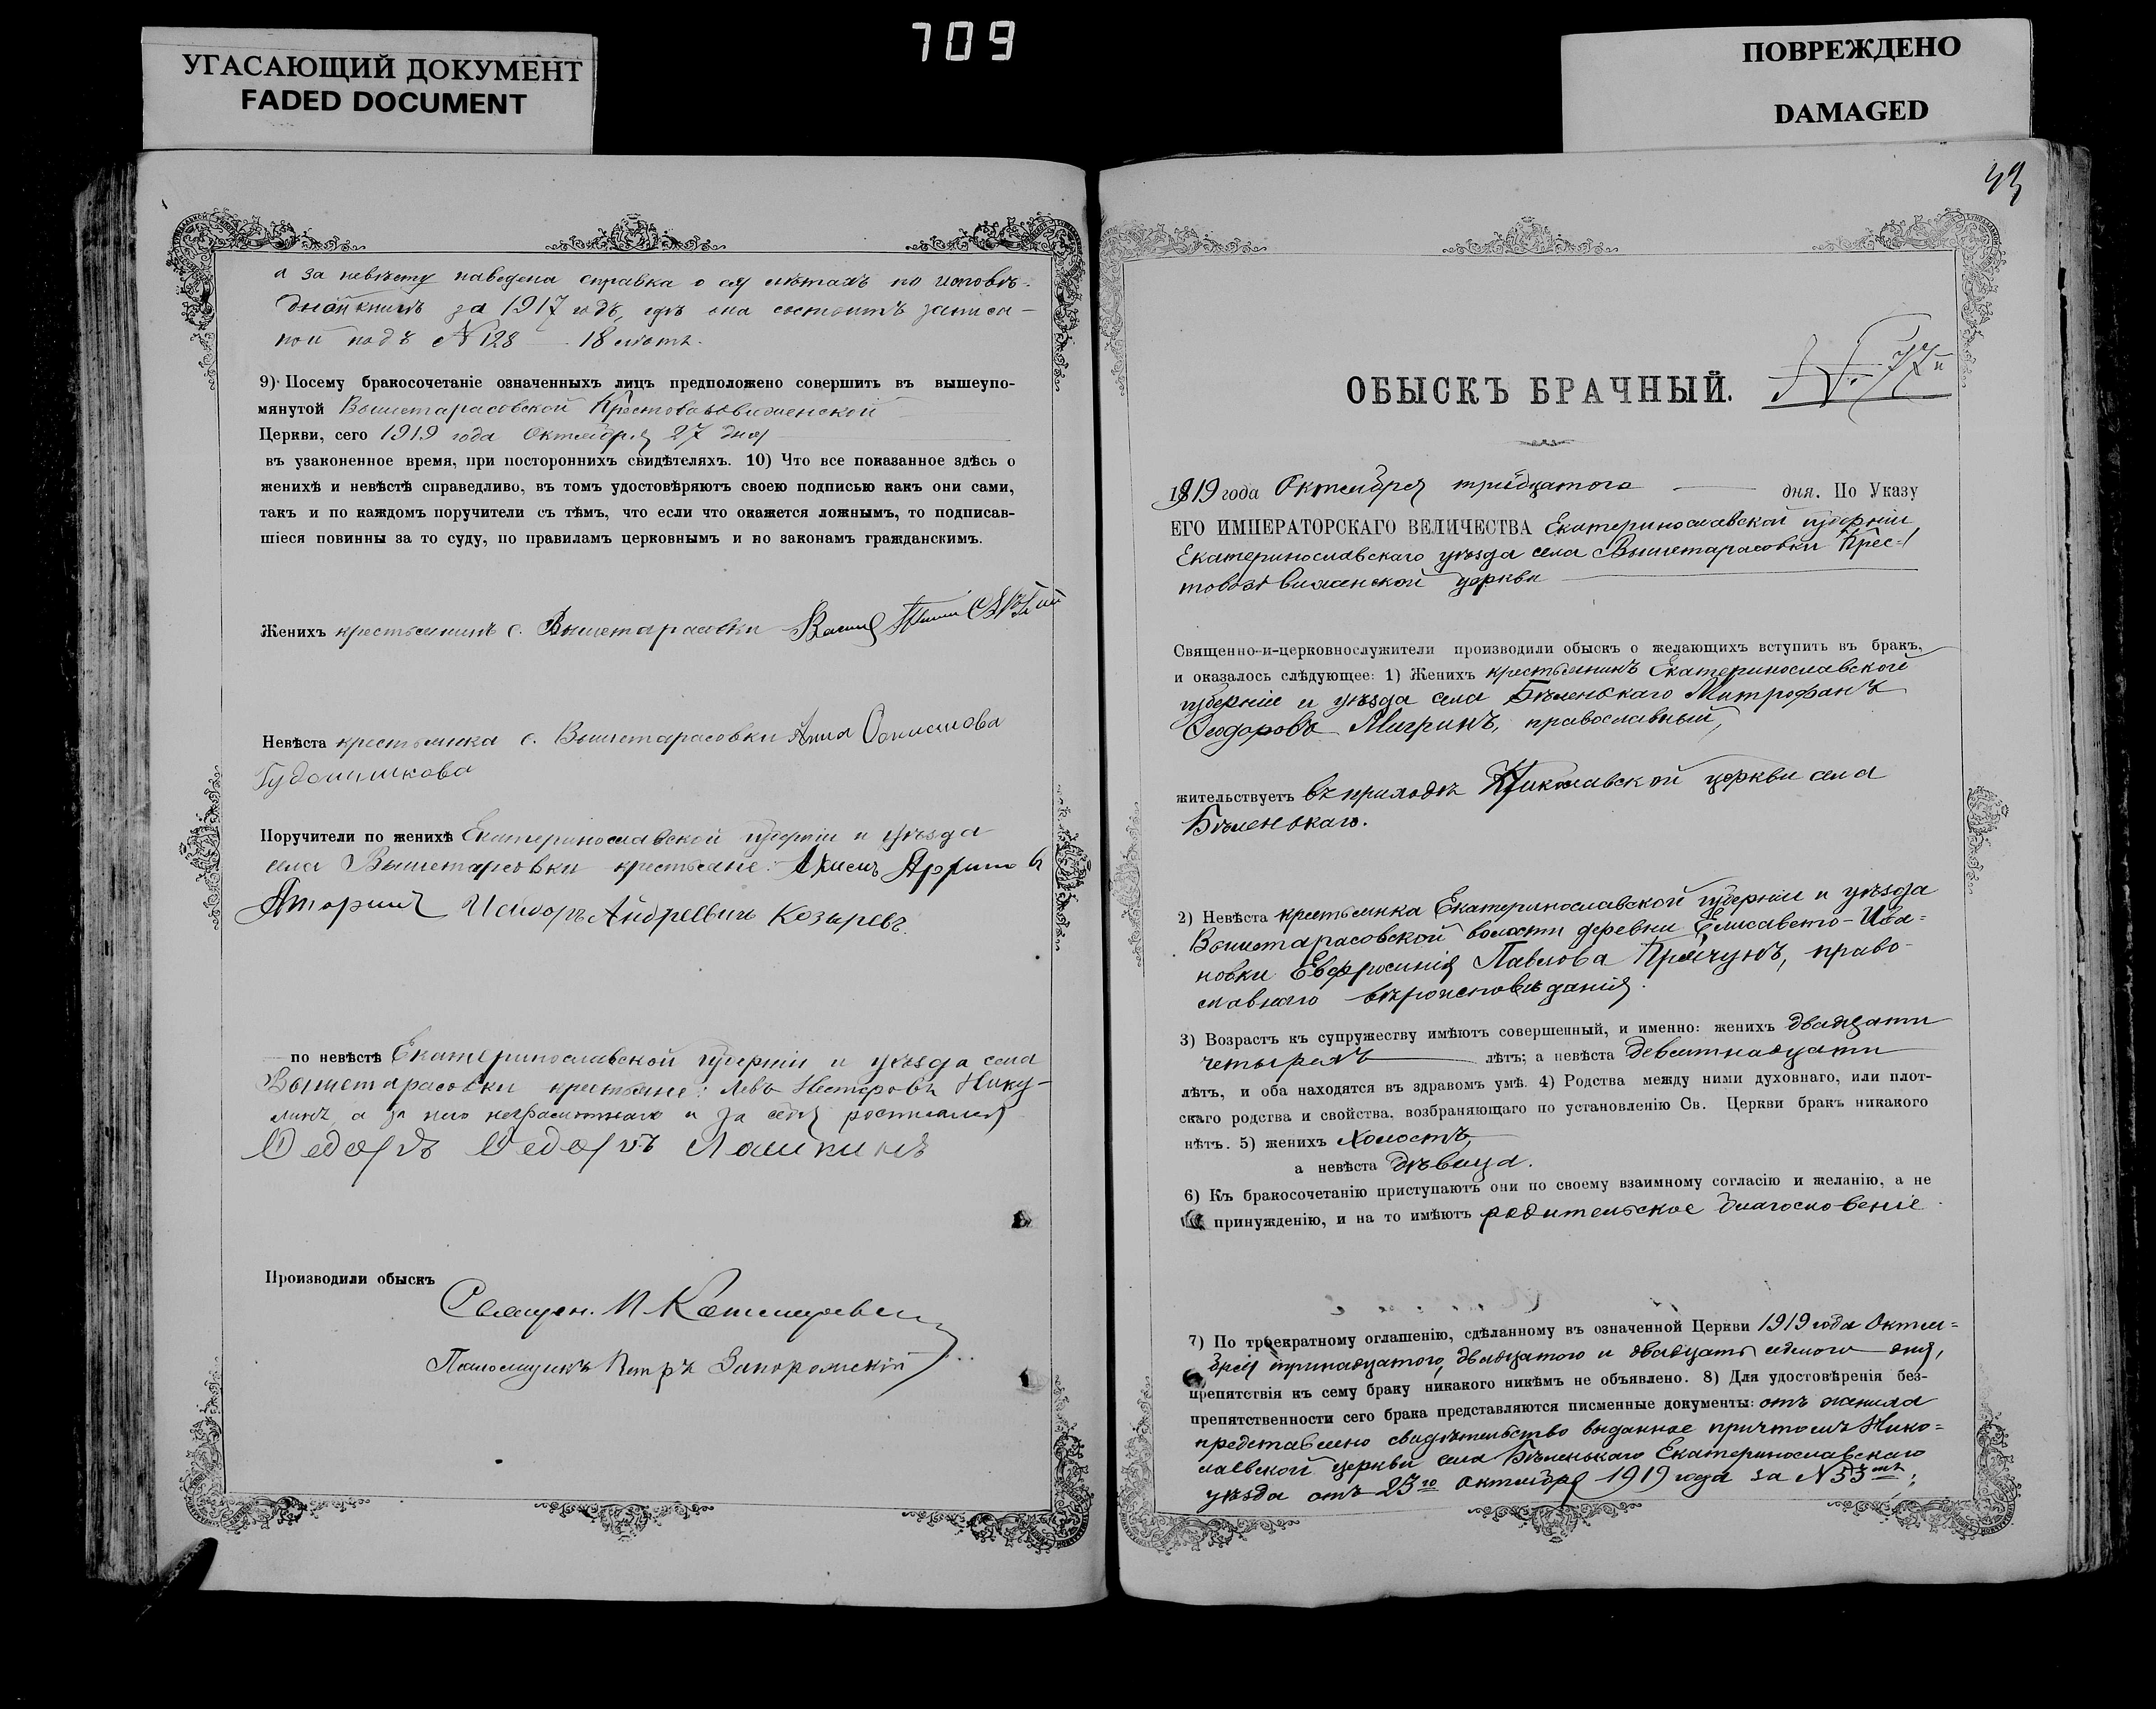 709
УГАСАЮЩИЙ ДОКУМЕНТ
FADED DOCUMENT
ПОВРЕЖДЕНО
DAMAGED
а за невѣсту наведена справка о ея лѣтахъ по исповѣ-
дной книгѣ за 1917 годъ, гдѣ она состоитъ записан-
ной подъ №128 - 18 лѣтъ.
9) Посему бракосочетаніе означенныхъ лицъ предположено совершить въ вышеупо-
мянутой Вышетарасовской Крестовоздвиженской
Церкви, сего 1919 года Октября 27 дня
въ узаконенное время, при постороннихъ свидѣтеляхъ. 10) Что все показанное здѣсь о
женихѣ и невѣстѣ справедливо, въ томъ удостовѣряютъ своею подписью какъ они сами,
такъ и по каждомъ поручители съ тѣмъ, что если что окажется ложнымъ, то подписав-
шіеся повинны за то суду, по правиламъ церковнымъ и по законамъ гражданскимъ.
Женихъ крестьянинъ с. Вышетарасовки
Невѣста крестьянка с. Вышетарасовки Анна
Поручители по женихѣ Екатеринославской губерніи и уѣзда
села Вышетарсовки крестьяне:
Андреевич Козыревъ.
по невѣстѣ Екатеринославской губерніи и уѣзда села
Вышетарасовки крестьяне: Левъ Нестеровъ Нику-
линъ, а за него неграмотнаго и за себя росписался
Федоръ Федоровъ Лашкинъ
Производили обыскъ
Священ. И.
Псаломщикъ Петръ Запорожскій
43
ОБЫСКЪ БРАЧНЫЙ. №. 77й
1919 года Октября тридцатого дня. По Указу
ЕГО ИМПЕРАТОРСКАГО ВЕЛИЧЕСТВА Екатеринославской губерніи
Екатеринославскаго уѣзда села Вышетарасовки Крес-
товоздвиженской церкви
Священно-и-церковнослужители производили обыскъ о желающихъ вступить въ бракъ,
и оказалось слѣдующее: 1) Женихъ крестьянинъ Екатеринославской
губерніи и уѣзда села Бѣленькаго Митрофанъ
Ѳеодоровъ Мигринъ, православный,
жительствуетъ въ приходѣ Николаевской церкви села
Бѣленькаго.
2) Невѣста крестьянка Екатеринославской губерніи и уѣзда
Вышетарасовской волости деревни Елисавето-Ива=
новки Евфросинія Павлова Прячунъ, право-
славнаго вѣроисповѣданія.
3) Возрастъ къ супружеству имѣютъ совершенный, и именно: женихъ двадцати
четырехъ лѣтъ; а невѣста девятнадцати
лѣтъ, и оба находятся въ здравомъ умѣ. 4) Родства между ними духовнаго, или плот-
скаго родства и свойства, возбраняющаго по установленію Св. Церкви бракъ никакого
нѣтъ. 5) женихъ холостъ,
а невѣста дѣвица.
6) Къ бракосочетанію приступаютъ они по своему взаимному согласію и желанію, а не
принужденію, и на то имѣютъ родительское благословеніе.
7) По троекратному оглашенію, сдѣланному въ означенной Церкви 1919 года Октя=
бря тринадцатого, двадцатого и двадцать седмого дня,
препятствія къ сему браку никакого никѣмъ не объявлено. 8) Для удостовѣренія без-
препятственности сего брака представляются писменные документы: отъ жениха
представлено свидѣтельство выданное причтомъ Нико=
лаевской церкви села Бѣленькаго Екатеринославскаго
уѣзда отъ 23го октября 1919 года за №53мъ;